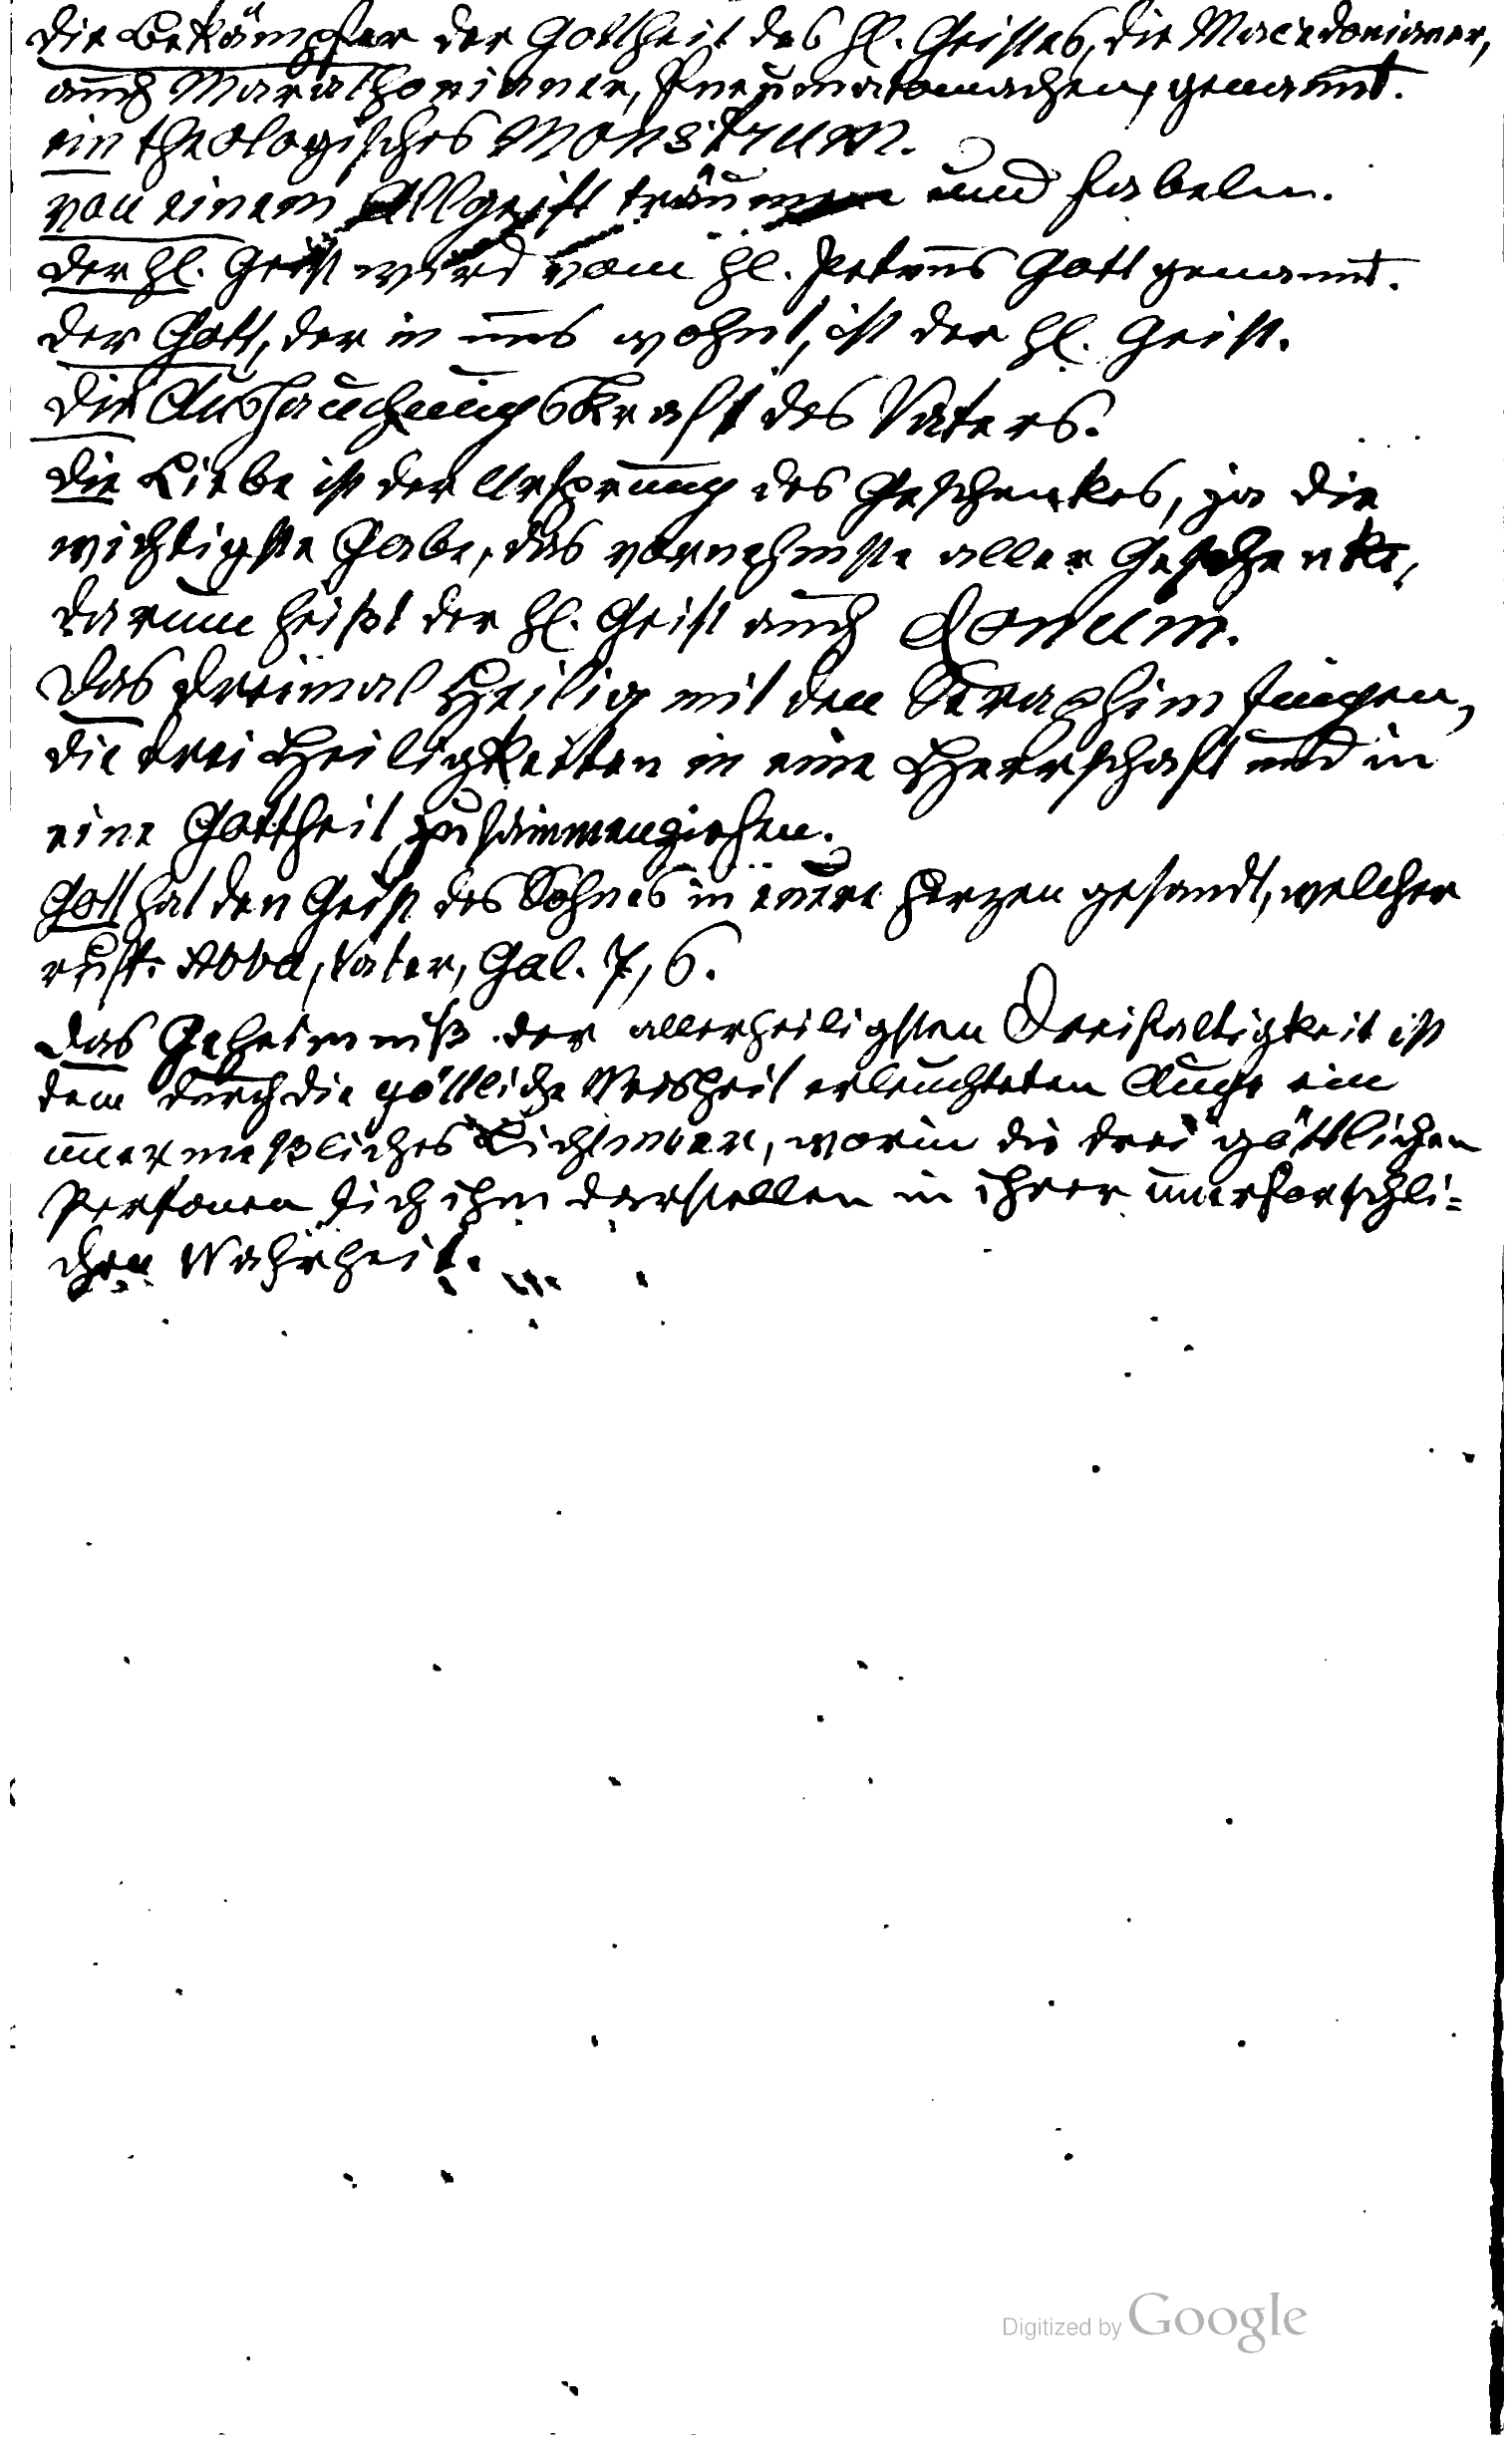 die Bekämpfer der Gottheit des hl. Geistes, die Macedonianer,
auch Marathonianer, Pneumatomachen, genannt.
ein theologisches Monstrum.
von einem Allgeist träumen und fabeln.
der hl. Geist wird vom hl. Petrus Gott genannt.
der Gott, der in uns wohnt, ist der hl. Geist.
die Aushauchungskraft des Vaters.
die Liebe ist der Ursprung des Geschenkes, ja die
wichtigste Gabe, das vornehmste aller Geschenke,
darum heißt der hl. Geist auch donum.
das dreimal Heilig mit den Seraphim singen,
die drei Heiligkeiten in eine Herrschaft und in
eine Gottheit zusammenziehen.
Gott hat den Geist des Sohnes in euere Herzen gesandt, welcher
ruft: Abba, Vater, Gal. 7, 6.
das Geheimniß der allerheiligsten Dreifaltigkeit ist
dem durch die göttliche Weisheit erleuchteten Auge ein
unermeßliches Lichtmeer, worin die drei göttlichen
Personen sich ihm darstellen in ihrer unerforschli=
chen Wahrheit.
Digitized by Google